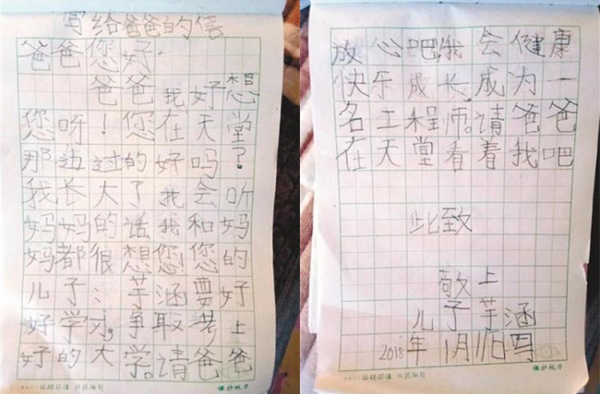 写给爸爸的信
爸爸您好:
爸爸我好想
您呀!您在天堂
那边过的好吗?
我长大了我会听
妈妈的话我和妈
妈都很想您!您的
儿子:芋涵要好
好学习,争取考上
好的大学。请爸爸
放心吧,我会健康
快乐成长,成为一
名工程师。请爸爸
在天堂看着我吧
此致
敬上
儿子芋涵
2018年1月11日写
保护视力
保护视力